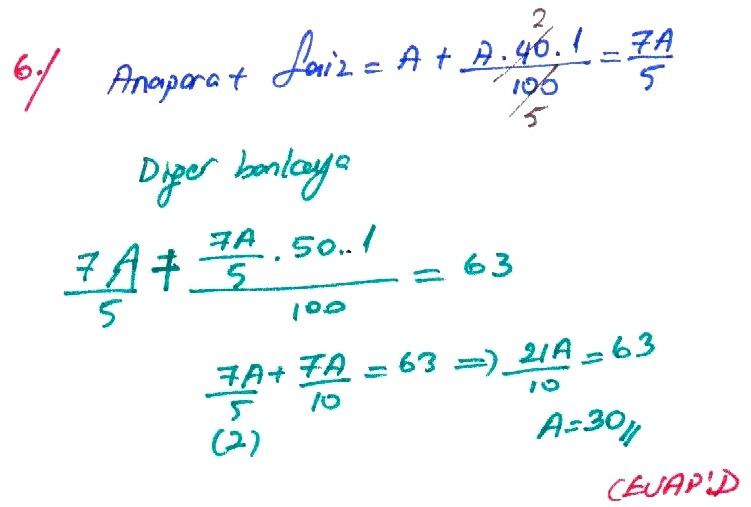 6./ Anapara + faiz = A + A.40.1/100 = 7A/5
2
5
Diğer bankaya
7A/5 + (7A/5 . 50..1)/100 = 63
7A/5 + 7A/10 = 63 => 21A/10 = 63
(2)
A=30//
CEVAP:D